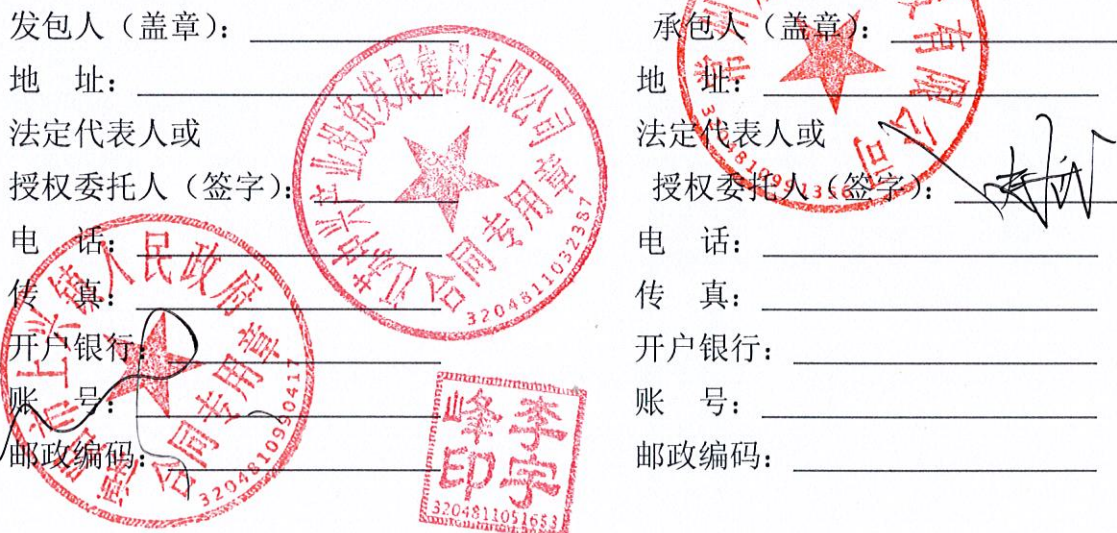 发包人（盖章）：
地 址：
法定代表人或
授权委托人（签字）：
电 话：
传 真：
开户银行：
账 号：
邮政编码：
承包人（盖章）：
地 址：
法定代表人或
授权委托人（签字）：
电 话：
传 真：
开户银行：
账 号：
邮政编码：
产业投资发展集团有限公司
合同专用章
3204811032387
市上兴镇人民政府
合同专用章
3204810990417
李宇
峰印
3204811051653
有限公司